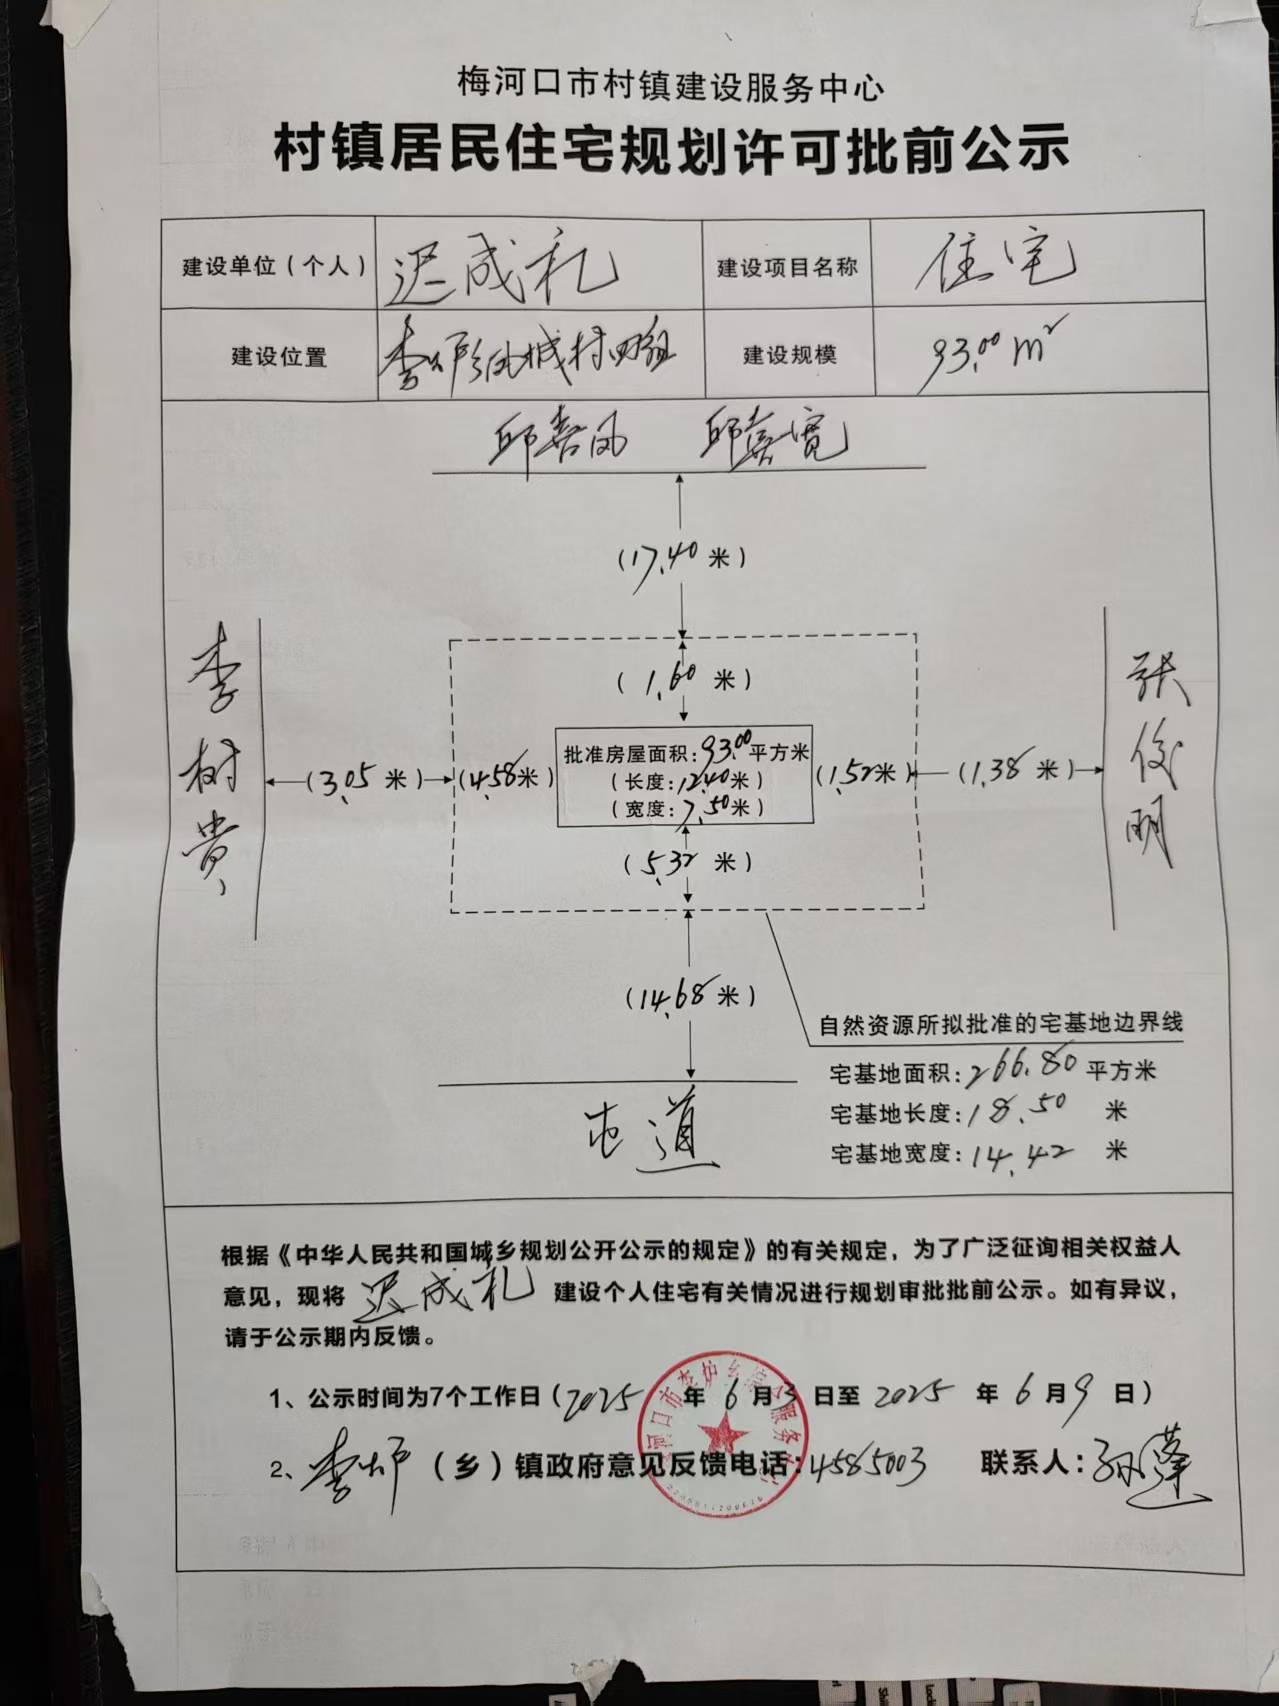 梅河口市村镇建设服务中心
村镇居民住宅规划许可批前公示
建设单位（个人） 迟成礼 建设项目名称 住宅
建设位置 李炉乡凤城村四组 建设规模 93.00m²
邱喜凤 邱喜宽
(17.40米)
(1.60米)
李树贵
(3.05米) (4.58米)
批准房屋面积:93.00平方米
(长度:12.40米)
(宽度:7.50米)
(1.52米) (1.38米)
张俊明
(5.32米)
(14.68米)
屯道
自然资源所拟批准的宅基地边界线
宅基地面积:266.80平方米
宅基地长度:18.50米
宅基地宽度:14.42米
根据《中华人民共和国城乡规划公开公示的规定》的有关规定，为了广泛征询相关权益人
意见，现将 迟成礼 建设个人住宅有关情况进行规划审批批前公示。如有异议，
请于公示期内反馈。
1、公示时间为7个工作日（2025年6月3日至2025年6月9日）
2、李炉（乡）镇政府意见反馈电话:4585003 联系人:孙蓬